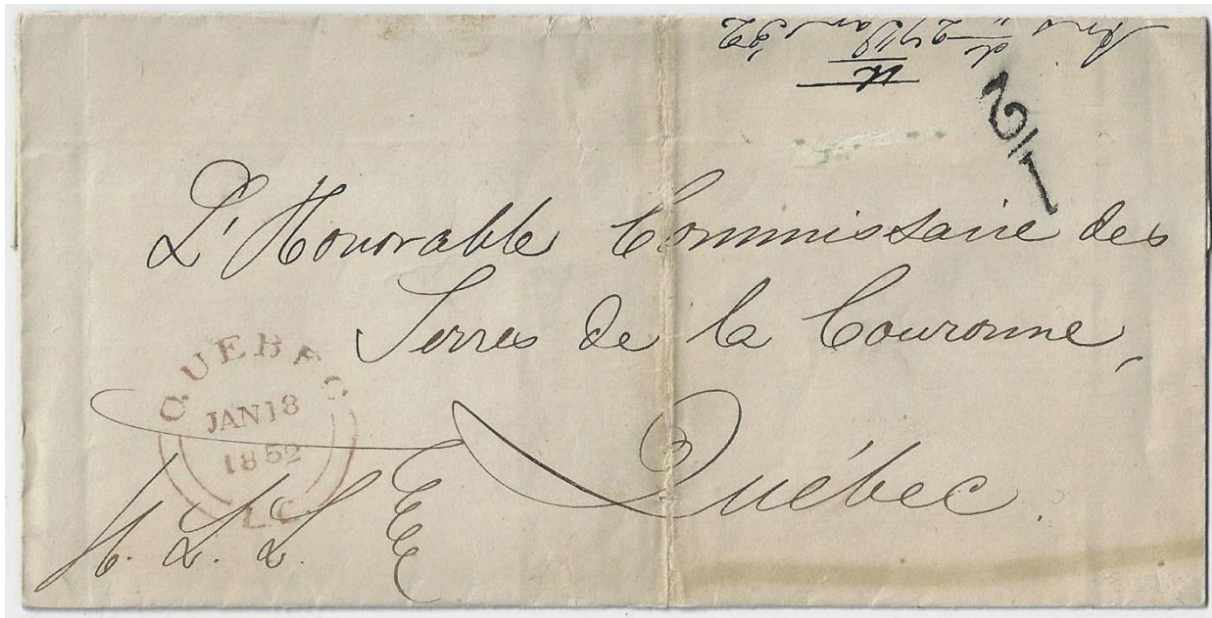 L'Honorable Commissaire des
Terres de la Couronne,
Québec.
QUEBEC
JAN 18
1852
L.C
1/2